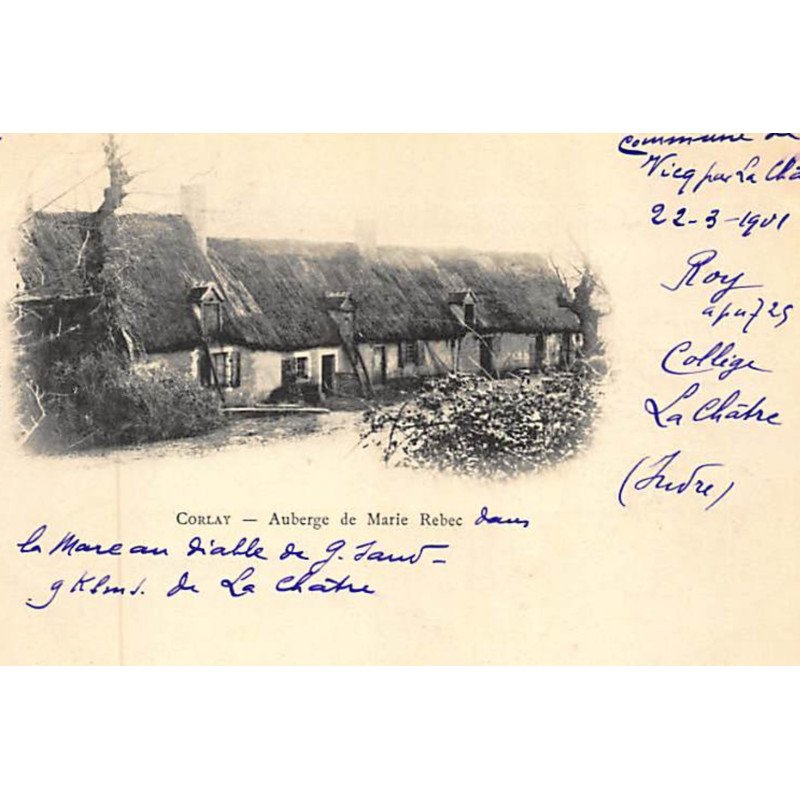 Commune de
Vicq par La Châ
22-3-1901
Roy
Collège
La Châtre
(Indre)
CORLAY — Auberge de Marie Rebec dans
la Mare au diable de G. Sand -
9 Klms. de La Châtre